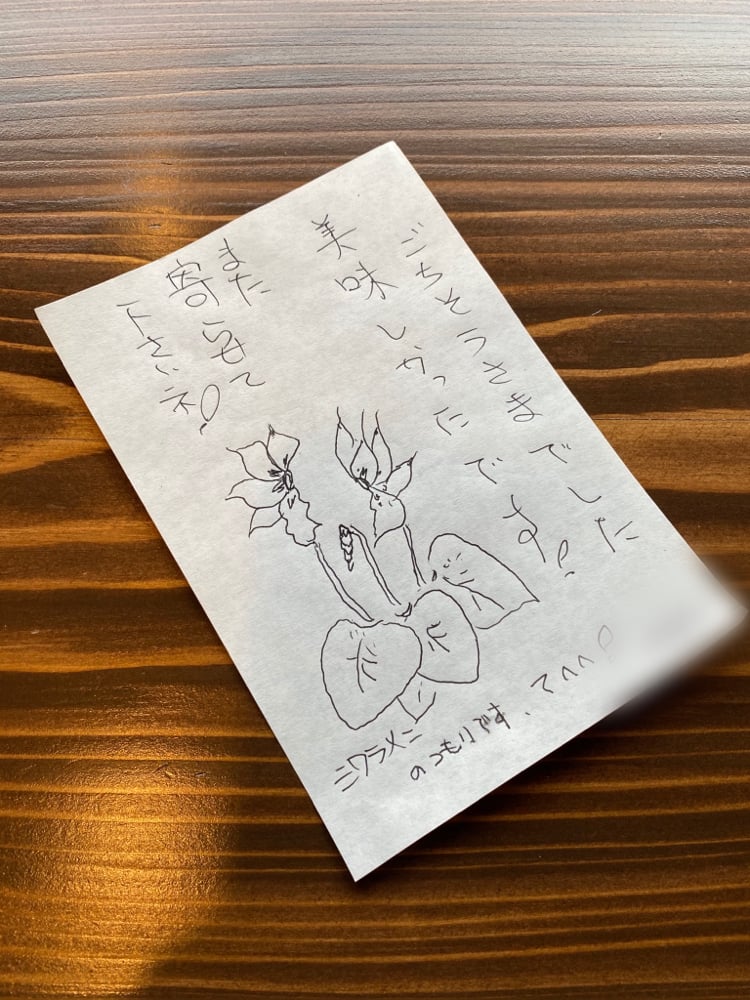 ごちそうさまでした
美味しかったです!
また
寄らせて
下さいネ!
シクラメン
のつもりです、てへへ!